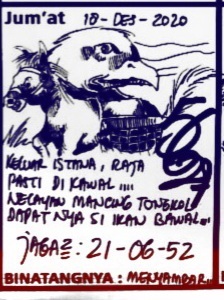 Jum'at 18-DES-2020
KELUAR ISTANA, RAJA
PASTI DI KAWAL ....
NELAYAN MANCING TONGKOL
DAPATNYA SI IKAN BAWAL...
JAGA2 : 21-06-52
BINATANGNYA : MENYAMBAR...